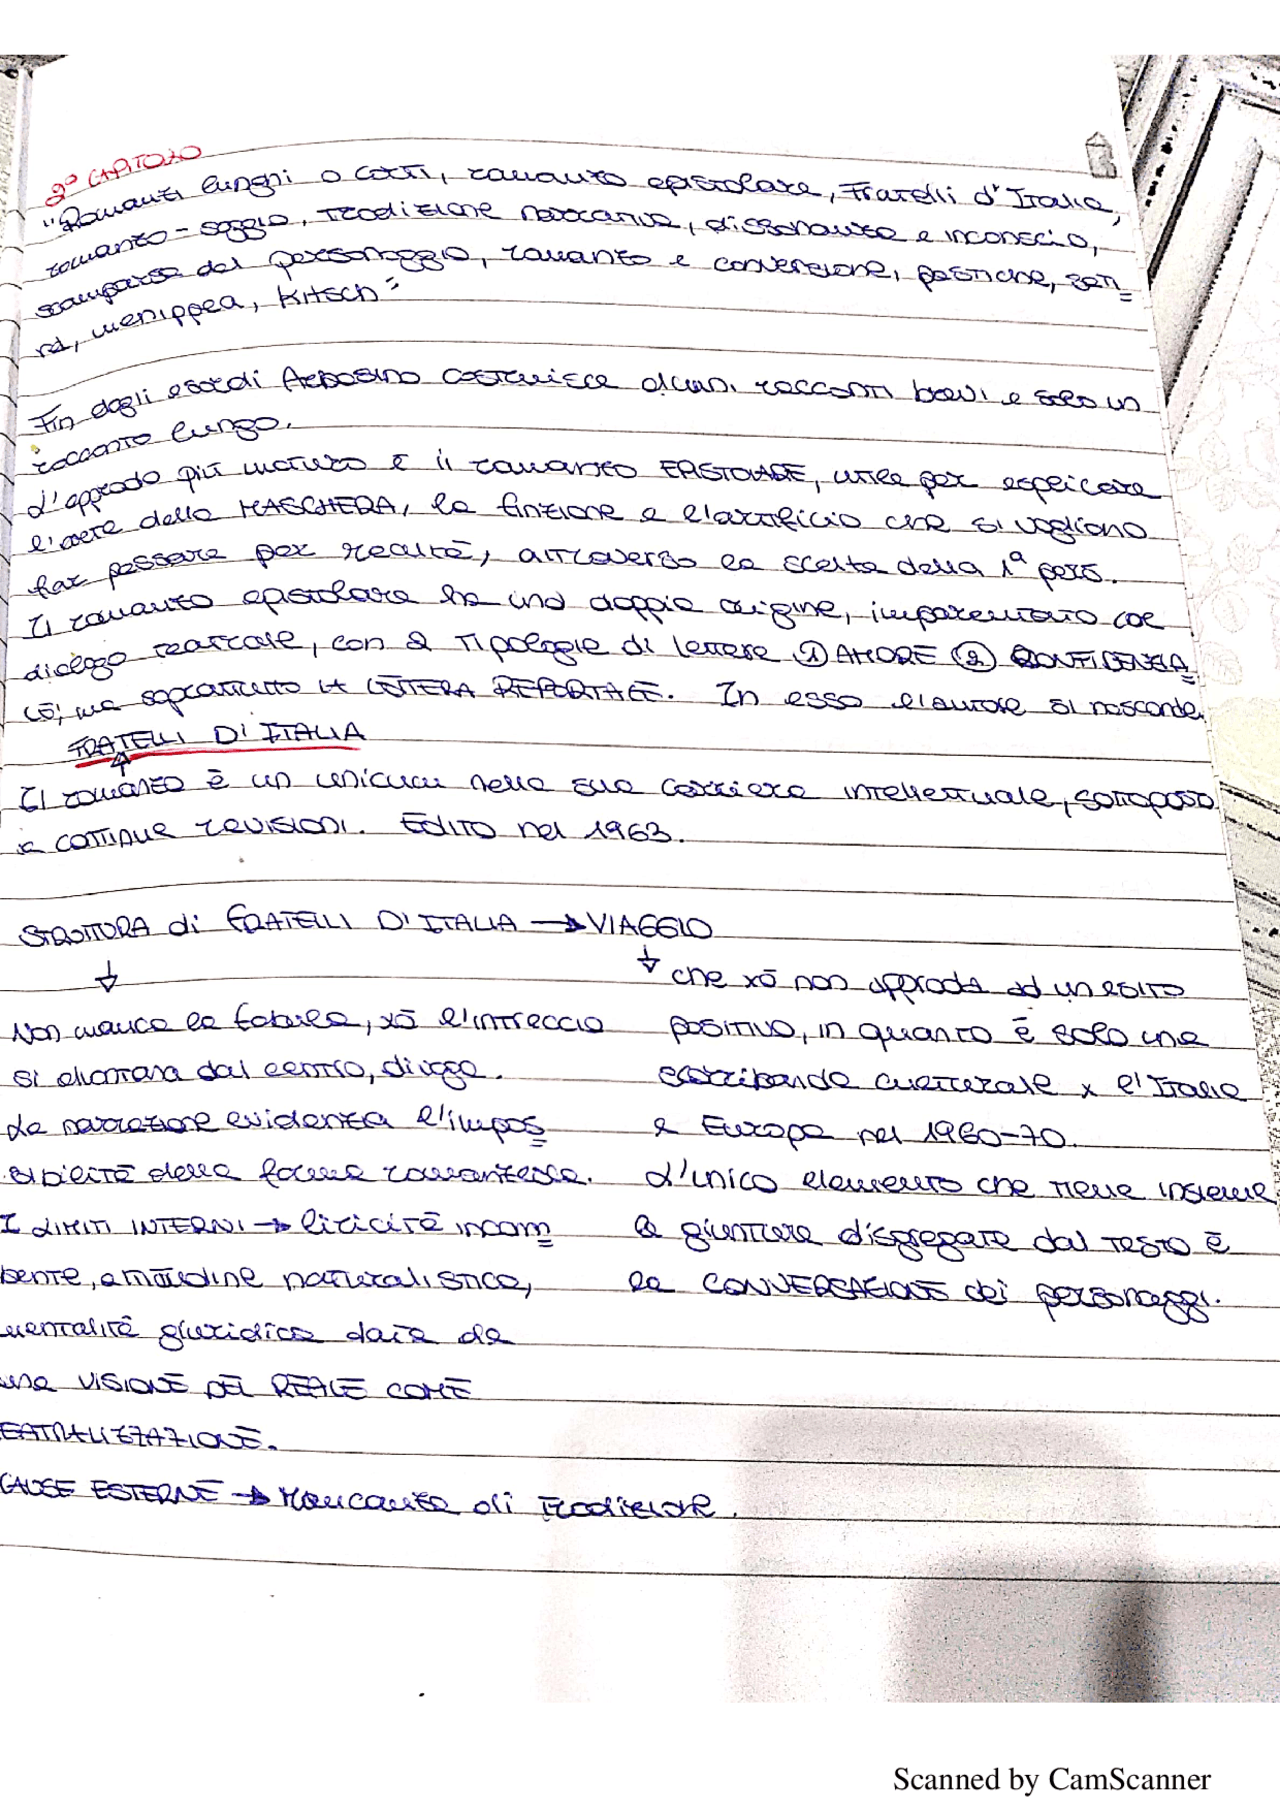 2° CAPITOLO
"Romanzi lunghi o corti, romanzo epistolare, Fratelli d'Italia,
romanzo-saggio, tradizione narrativa, dissonanza e inconscio,
scomparsa del personaggio, romanzo e conversione, pastiche, sati=
ra, menippea, Kitsch"
Fin dagli esordi Arbasino costruisce alcuni racconti brevi e solo un
racconto lungo.
L'approdo più maturo è il romanzo EPISTOLARE, utile per esplicare
l'arte della MASCHERA, la finzione e l'artificio che si vogliono
far passare per realtà, attraverso la scelta della 1ª pers.
Il romanzo epistolare ha una doppia origine, imparentato col
dialogo teatrale, con 2 tipologie di lettere ① AMORE ② CONFIDENZIA=
LE, ma soprattutto LA LETTERA REPORTAGE. In esso l'autore si nasconde.
FRATELLI D'ITALIA
Il romanzo è un unicum nella sua carriera intellettuale, sottoposto
a continue revisioni. Edito nel 1963.
STRUTTURA di FRATELLI D'ITALIA → VIAGGIO
Non manca la fabula, xò l'intreccio
si allontana dal centro, divaga.
La narrazione evidenzia l'impos=
sibilità della forma romanzesca.
I LIMITI INTERNI → liricità incom=
bente, attitudine naturalistica,
mentalità giuridica data da
una VISIONE DEL REALE COME
EATRALIZZAZIONE.
CAUSE ESTERNE → Mancanza di tradizione.
che xò non approda ad un esito
positivo, in quanto è solo una
scorribanda culturale x l'Italia
e Europa nel 1960-70.
L'unico elemento che tiene insieme
le giunture disgregate dal testo è
la CONVERSAZIONE dei personaggi.
Scanned by CamScanner